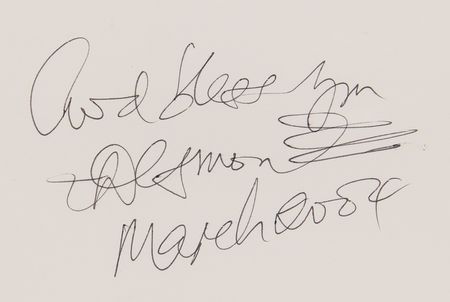 God bless you
+Desmond
March 2004